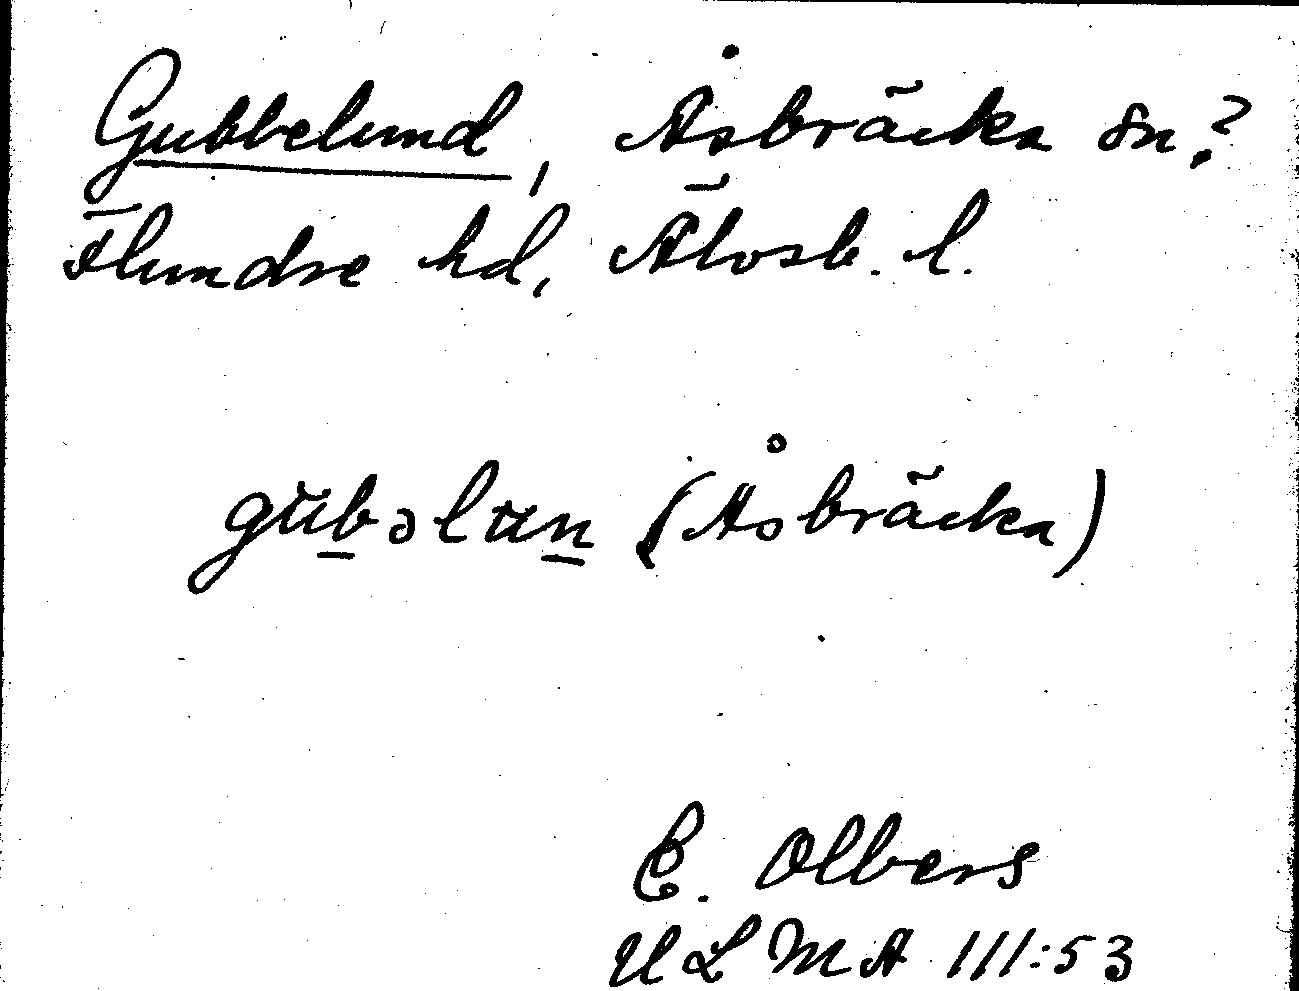 Gubbelund, Åsbräcka sn?
Flundre hd, Älvsb. l.
gubəlun (Åsbräcka)
E. Olbers
ULMA 111:53